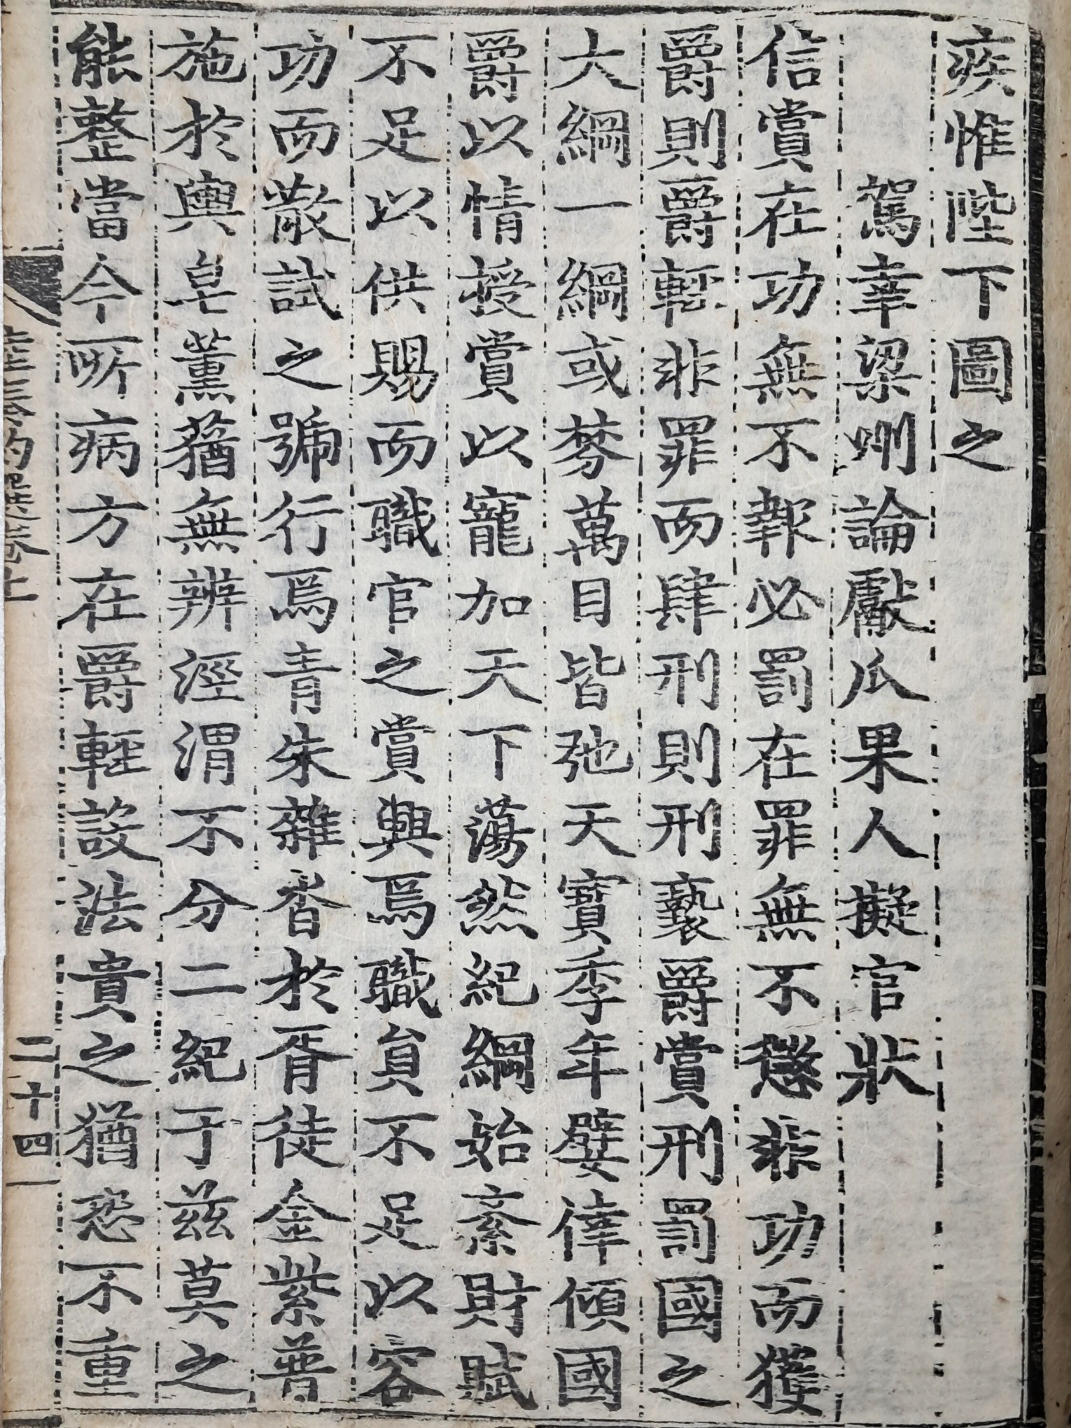 疾惟陛下圖之
駕幸梁州論獻瓜果人擬官狀
信賞在功無不報必罰在罪無不懲非功而獲
爵則爵輕非罪而肆刑則刑褻爵賞刑罰國之
大綱一綱或棼萬目皆弛天寶季年嬖倖傾國
爵以情授賞以寵加天下蕩然紀綱始紊財賦
不足以供賜而職官之賞興焉職員不足以容
功而散試之號行焉青朱雜沓於胥徒金紫普
施於輿皁薰蕕無辨涇渭不分二紀于茲莫之
能整當今所病方在爵輕設法貴之猶恐不重
二十四